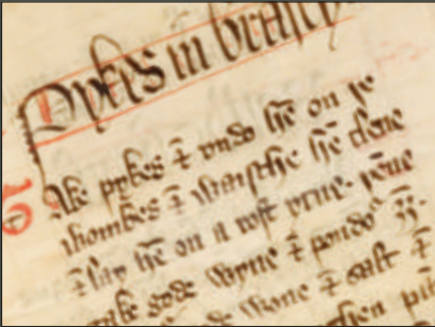 Pykes in brasey
Take pykes & vndo hē on þe
wombes & waisshe hē clene
& lay hē on a rost yrne. þēne
take gode wyne & poudʳ gȝ.
de wone & salt &
then